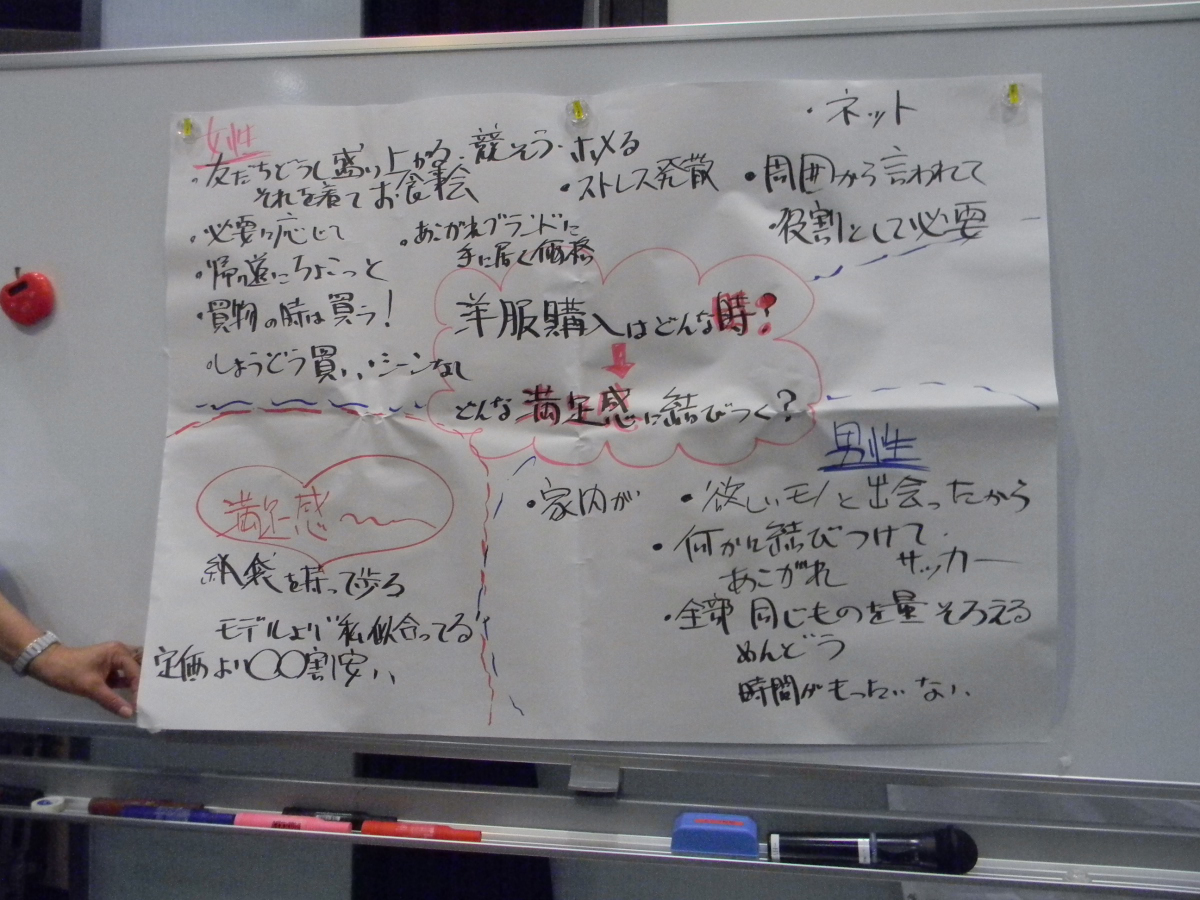 女性
・友だちどうし盛り上がる・競そう・ホメる
それを着てお食事会
・ストレス発散
・必要に応じて
・あこがれブランドに
手に届く価格
・帰り道にちょこっと
・買物の時は買う!
・しょうどう買い、シーンなし
・ネット
・周囲から言われて
・役割として必要
洋服購入はどんな時?
どんな満足感に結びつく?
満足感
紙袋を持って歩ろ
モデルより“私似合ってる”
定価より〇〇割安い
男性
・家内が
・欲しいモノと出会ったから
・何かに結びつけて
あこがれ サッカー
・全部同じものを量そろえる
めんどう
時間がもったいない